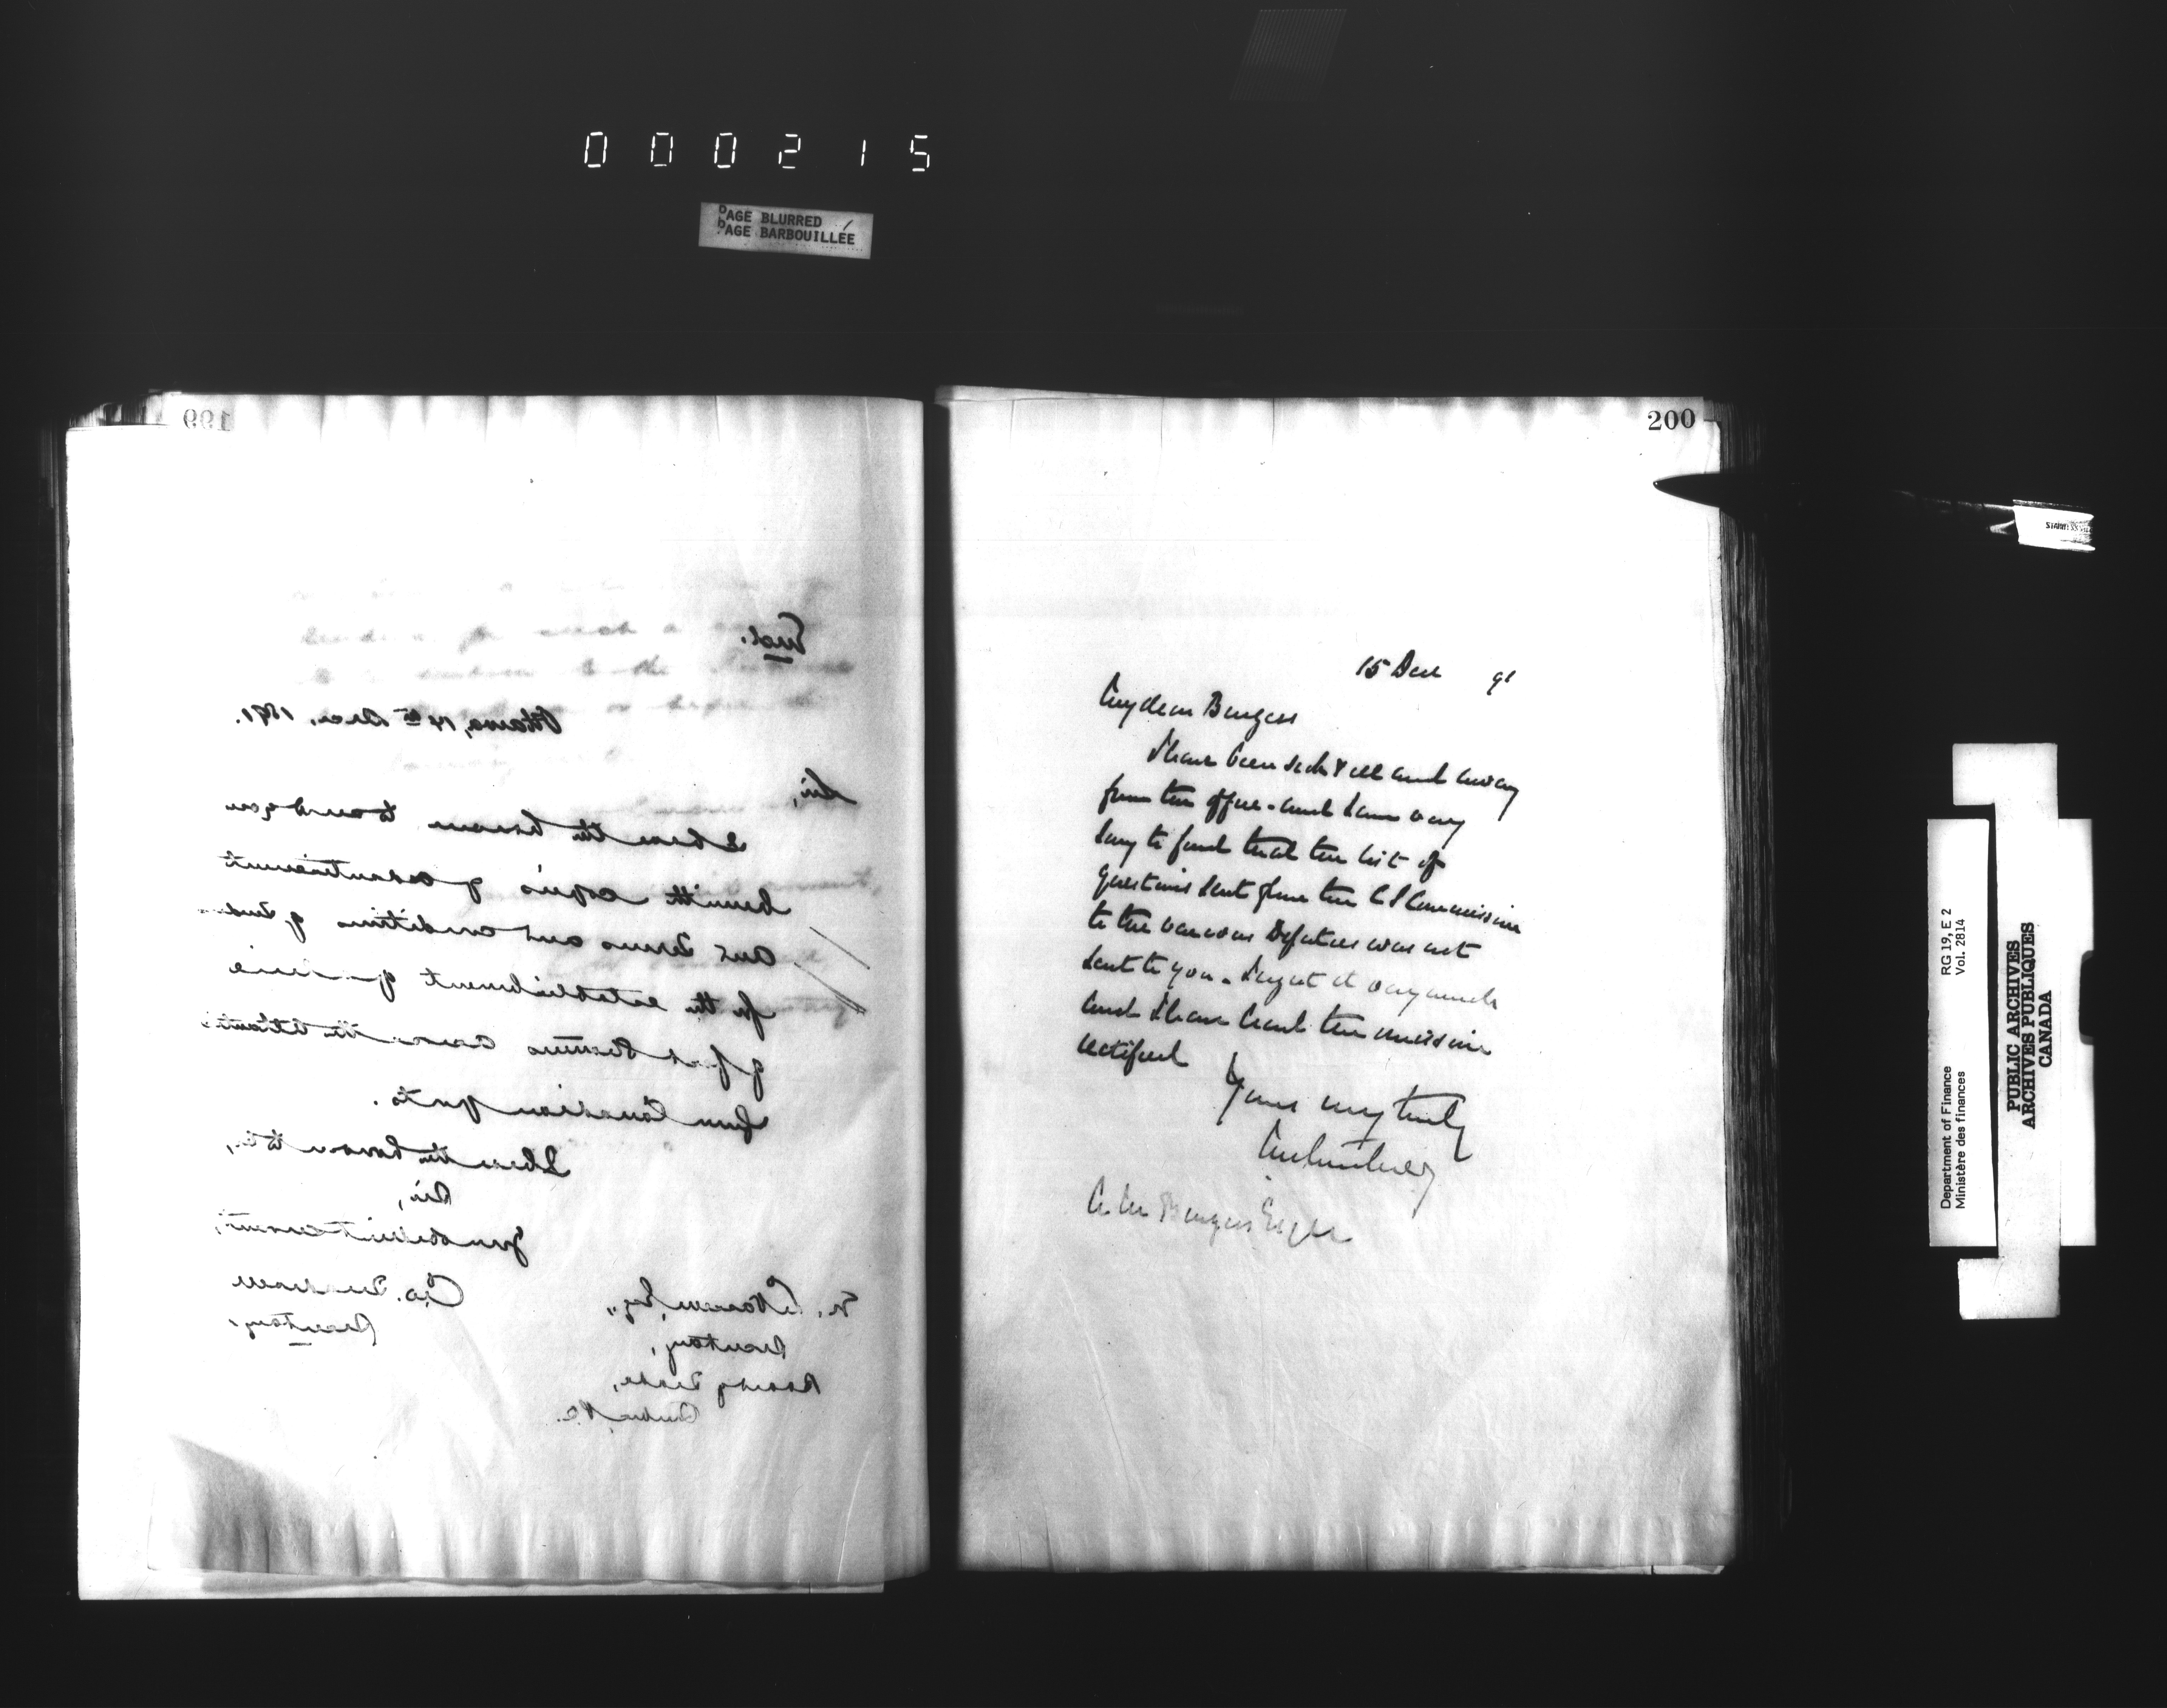 000215
PAGE BLURRED
PAGE BARBOUILLÉE
199
Encl.
Ottawa, 14th Decr. 1891.
Sir,
I have the honour to send you
herewith copies of advertisement
and terms and conditions of
for the establishment of a line
of fast steamers across the Atlantic
from Canadian ports.
I have the honour to be,
Sir,
Your obedient servant,
Secretary.
Esq.,
Secretary,
Board of Trade,
Quebec, P.Q.
200
15 Dec 91
My dear Burgess
I have been sick & ill and away
from the office - and I am very
sorry to find that the list of
questions sent from the C S Commission
to the various Deputies was not
sent to you - I regret it very much
and I have had the omission
rectified
Yours very truly
A M Burgess Esqre
RG 19, E 2
Vol. 2814
Department of Finance
Ministère des finances
PUBLIC ARCHIVES
ARCHIVES PUBLIQUES
CANADA